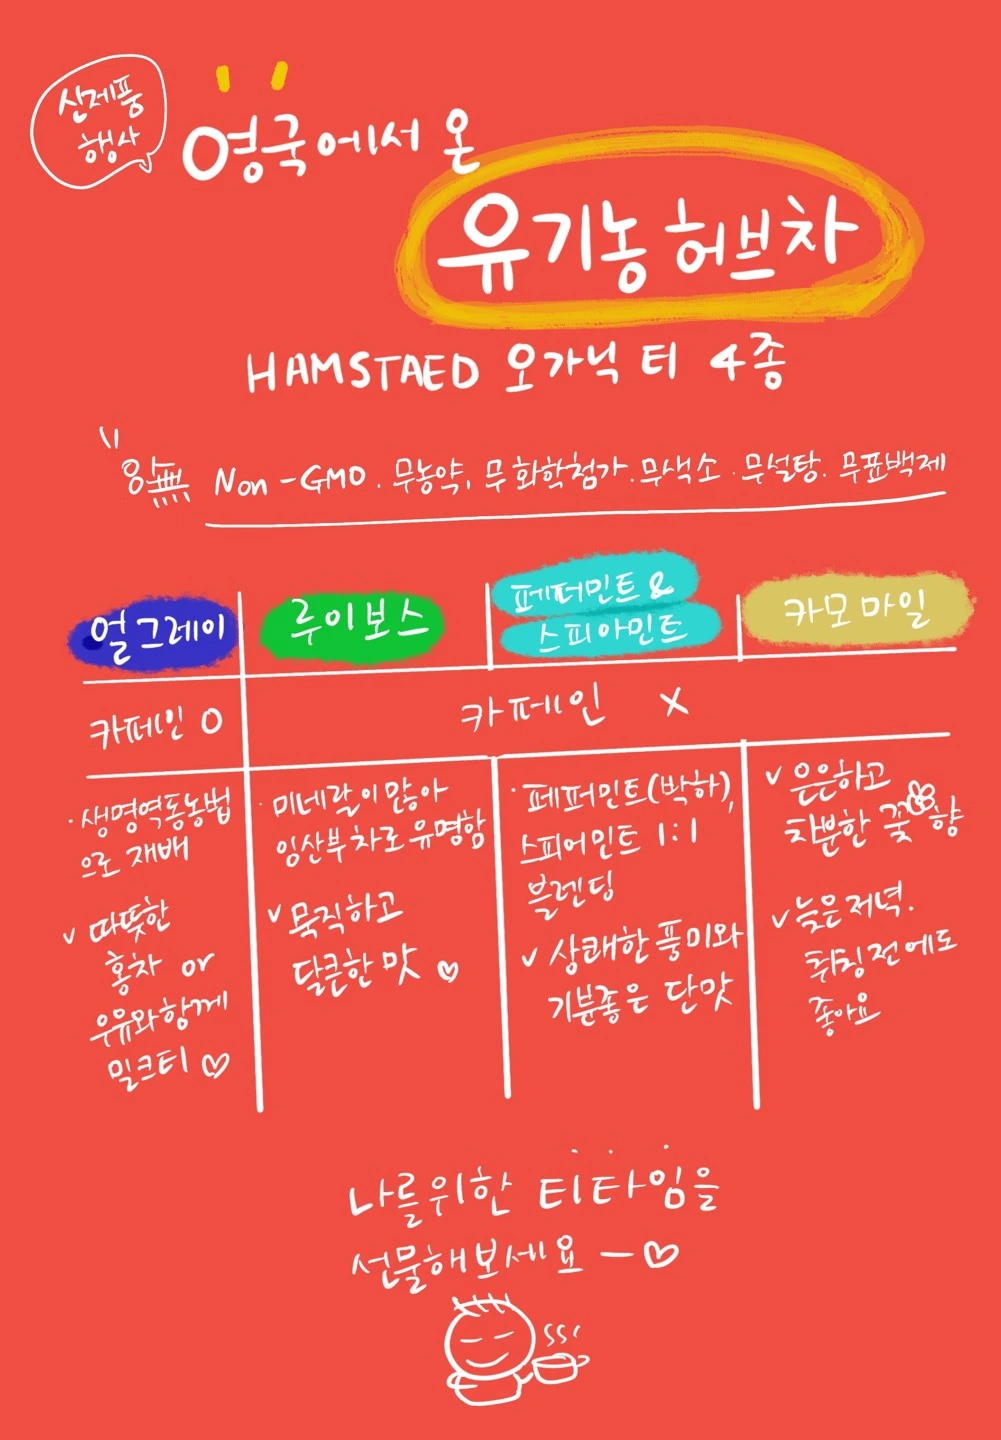 신제품
행사
영국에서 온
유기농 허브차
HAMSTAED 오가닉 티 4종
無 Non-GMO. 무농약, 무화학첨가. 무색소. 무설탕. 무표백제
얼그레이
루이보스
페퍼민트 &
스피아민트
카모마일
카페인 O
카페인 X
· 생명역동농법
으로 재배
✓ 따뜻한
홍차 or
우유와 함께
밀크티 ♡
· 미네랄이 많아
임산부 차로 유명함
✓ 묵직하고
달큰한 맛 ♡
· 페퍼민트(박하),
스피어민트 1:1
블렌딩
✓ 상쾌한 풍미와
기분좋은 단맛
✓ 은은하고
차분한 꽃향
✓ 늦은 저녁.
취침전에도
좋아요
나를위한 티타임을
선물해보세요 - ♡